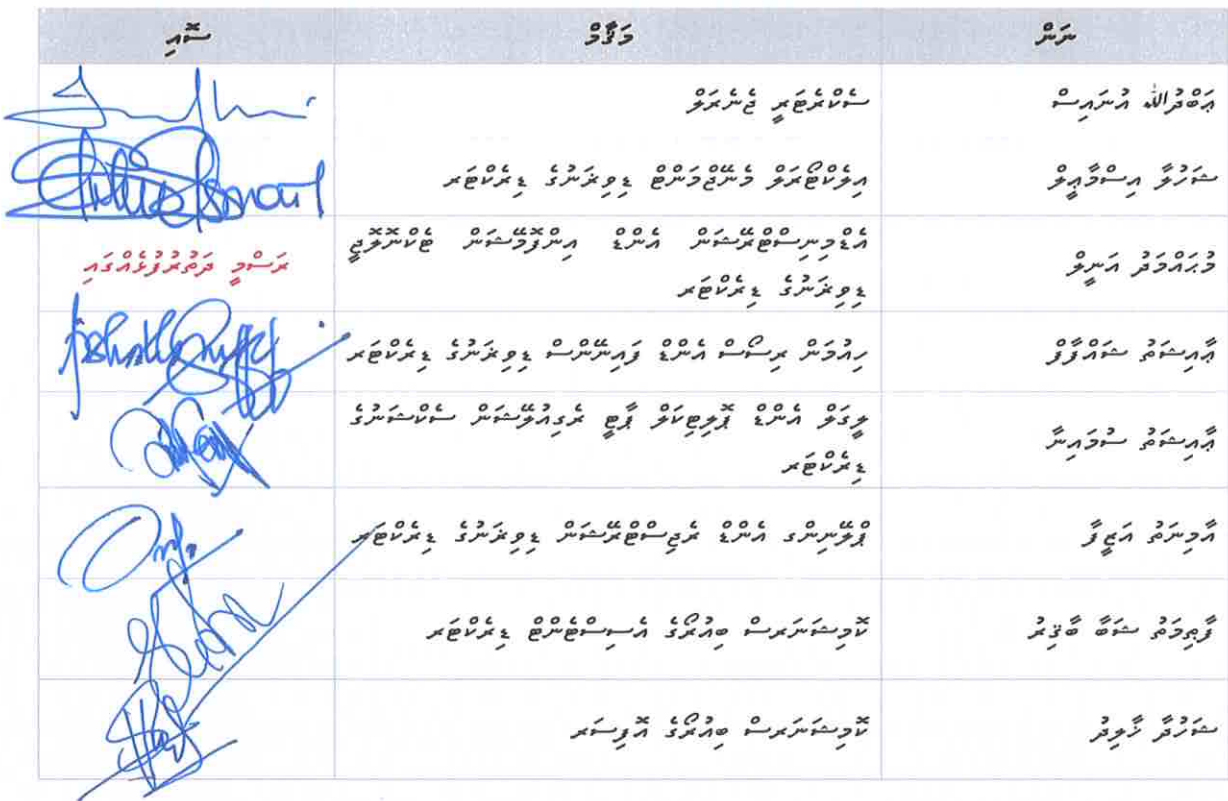 ނަން މަޤާމް ސޮއި
ޢަބްދުﷲ އުނައިސް ސެކްރެޓަރީ ޖެނެރަލް
ޝަހުލާ އިސްމާޢީލް އިލެކްޓޯރަލް މެނޭޖްމަންޓް ޑިވިޜަނުގެ ޑިރެކްޓަރ
މުޙައްމަދު އަނީލް އެޑްމިނިސްޓްރޭޝަން އެންޑް އިންފޮމޭޝަން ޓެކްނޮލޮޖީ ރަސްމީ ދަތުރުފުޅެއްގައި
ޑިވިޜަނުގެ ޑިރެކްޓަރ
ޢާއިޝަތު ޝައްފާފް ހިއުމަން ރިސޯސް އެންޑް ފައިނޭންސް ޑިވިޜަނުގެ ޑިރެކްޓަރ
ޢާއިޝަތު ސުމައިނާ ލީގަލް އެންޑް ޕޮލިޓިކަލް ޕާޓީ ރެގިއުލޭޝަން ސެކްޝަނުގެ
ޑިރެކްޓަރ
އާމިނަތު އަޒީފާ ޕްލޭނިންގ އެންޑް ރެޖިސްޓްރޭޝަން ޑިވިޜަނުގެ ޑިރެކްޓަރ
ފާޠިމަތު ޝަބާ ބާޤިރު ކޮމިޝަނަރސް ބިއުރޯގެ އެސިސްޓެންޓް ޑިރެކްޓަރ
ޝަހުދާ ޚާލިދު ކޮމިޝަނަރސް ބިއުރޯގެ އޮފިސަރ